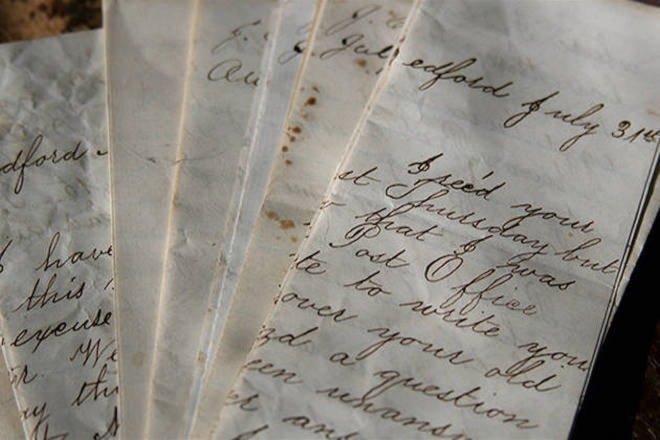 dford
I have
this
excuse
r. We
ay thi
G.
Au
J.
Jul
edford July 31st
I rec'd your
st Thursday but
that I was
Post Office
te to write you
over your old
nd a question
een unansw
er an